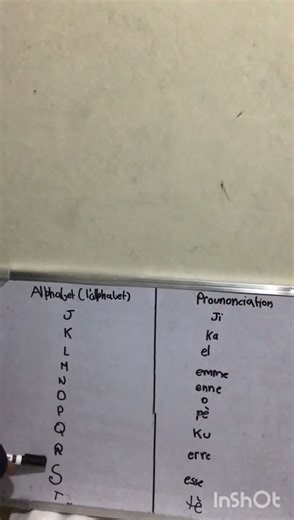 Alphabet (l'alphabet) Prounonciation
J Ji
K Ka
L el
M emme
N enne
O o
P pè
Q Ku
R erre
S esse
T tè
InShOt